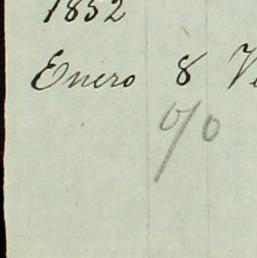 1852
Enero 8 V
%